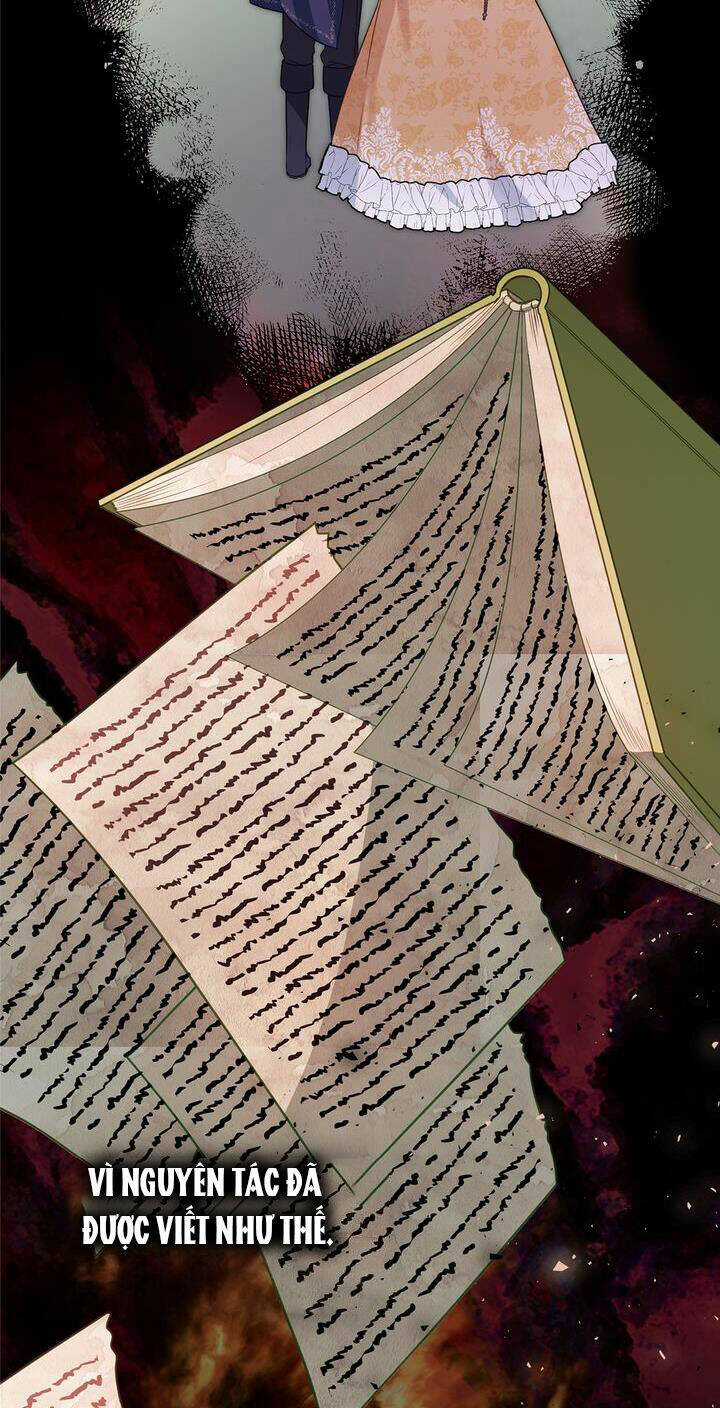 VÌ NGUYÊN TÁC ĐÃ
ĐƯỢC VIẾT NHƯ THẾ.